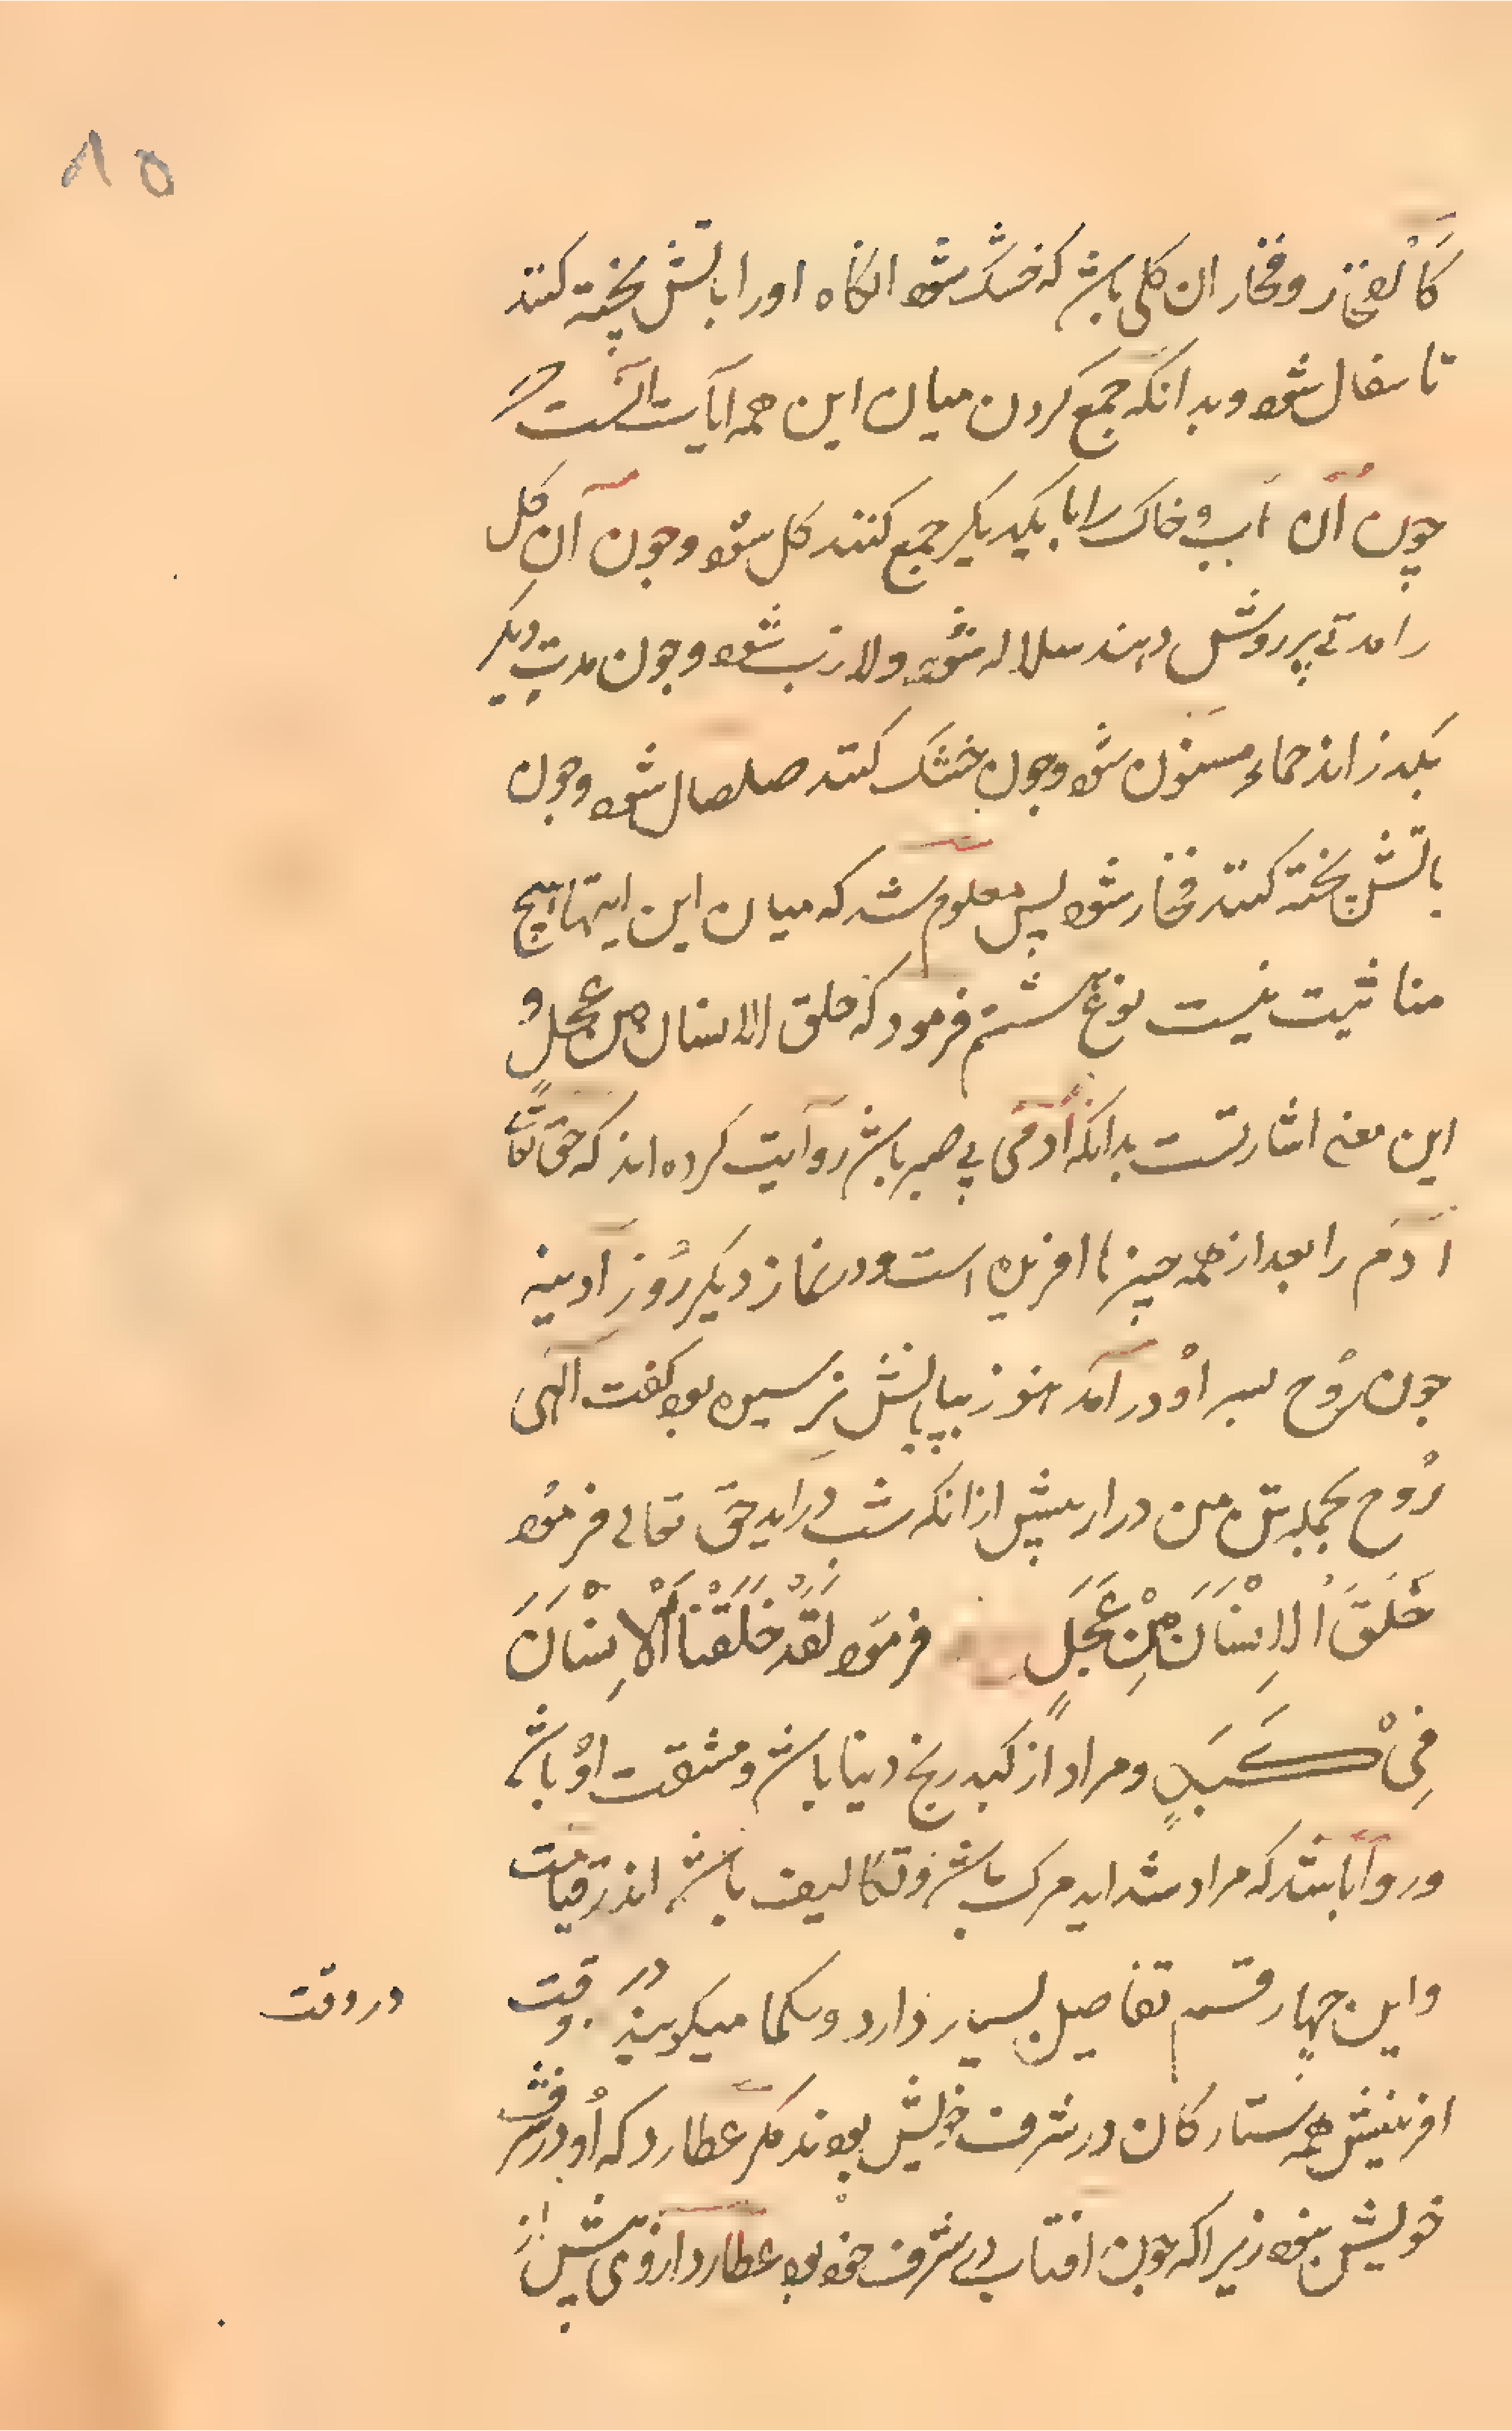 ۸۵
کالفخار و فخار ان کلی باشد که خشک شود انکاه اورا باتش پخته کنند
تا سفال شود و بدانکه جمع کردن میان این همه ایات آنست که
چون آن آب و خاک را با یکدیکر جمع کنند کل شود و جون آن کل
را مدتی پرروش دهند سلاله شود و لازب شود و جون مدتی دیکر
بکذرانند حماء مسنون شود و جون خشک کنند صلصال شود و جون
باتش پخته کنند فخار شود پس معلوم شد که میان این ایتها هیچ
منافیت نیست نوع ششم فرمود که خلق الانسان من عجل و
این معنی اشارتست بدانکه آدمی بی صبر باشد روایت کرده اند که حق تعالی
آدم را بعد از همه چیزها افریده است و در نماز دیکر روز آدینه
جون روح بسر او در آمد هنوز بپایانش نرسیده بود کفت الهی
روح بجمله تن من در ار پیش از انکه شب در اید حق تعالی فرمود
خَلَقَ الْإِنْسَانَ مِنْ عَجَلٍ فرمود لَقَدْ خَلَقْنَا الْإِنْسَانَ
فِی كَبَدٍ و مراد از کبد رنج دینا باشد و مشقت او باشد
و روا باشد که مراد شداید مرک باشد و تکالیف باشد اندر قیامت
و این چهار قسم تفاصیل بسیار دارد و حکما میکویند در وقت
در وقت
افرینش همه ستارکان در شرف خویش بودند مکر عطارد که او در شرف
خویش نبود زیرا که جون افتاب در شرف خود بود عطارد از وی پیش از